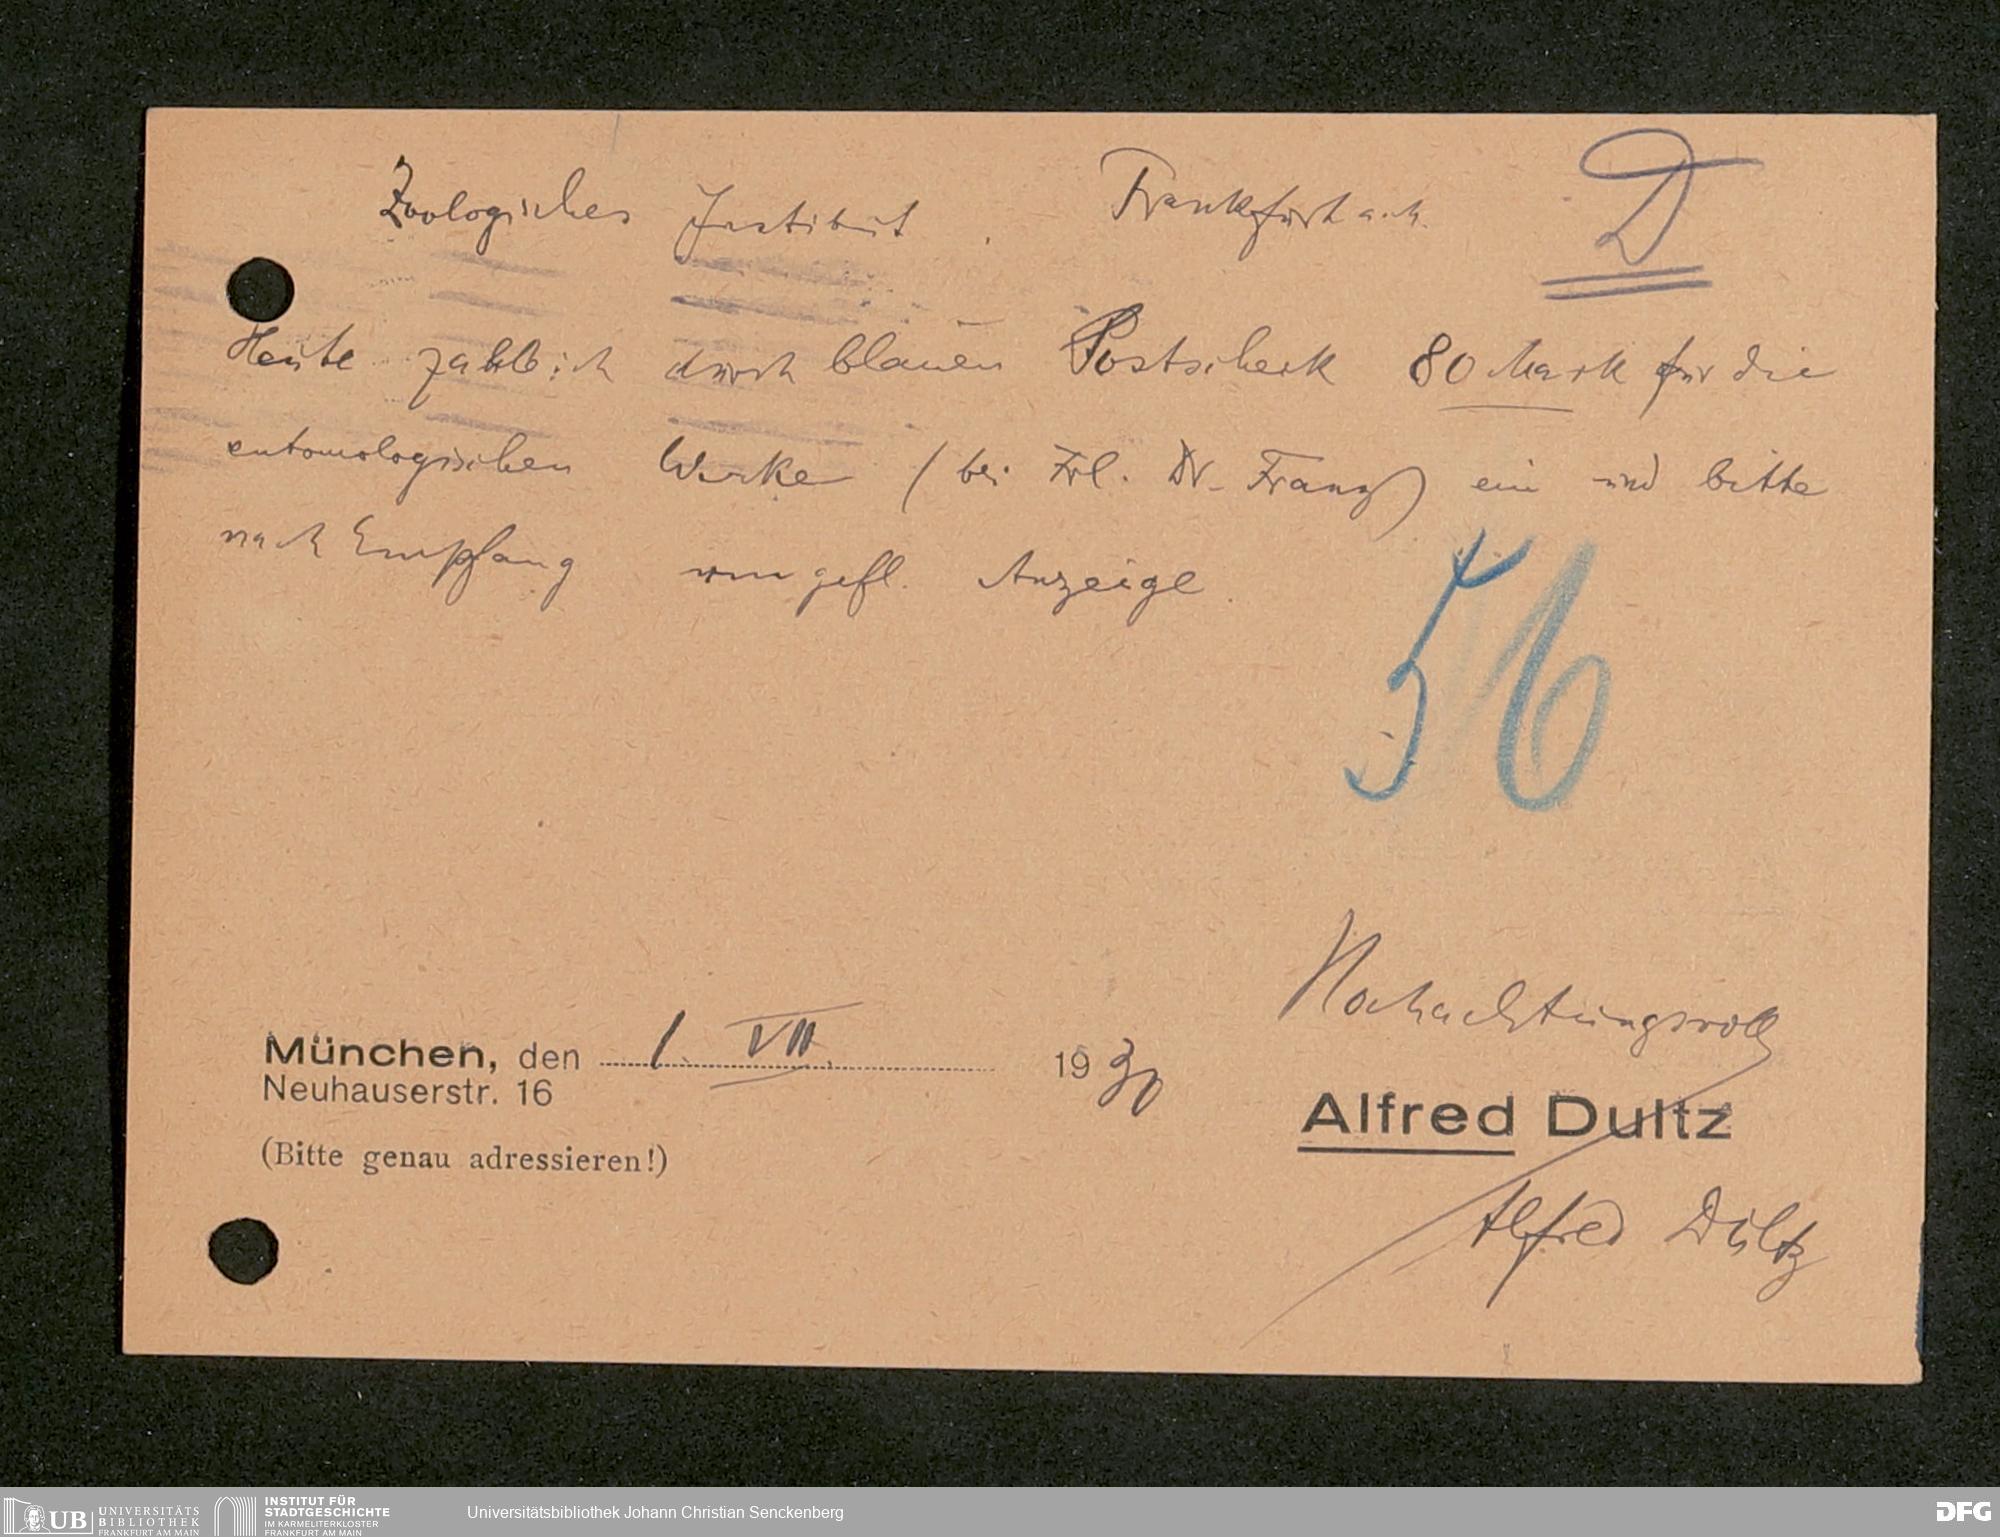 Zoologisches Institut. Frankfurt a. M. D
Heute zahle ich durch blauen Postscheck 80 Mark für die
entomologischen Werke (bei Frl. Dr. Franz) ein und bitte
nach Empfang um gefl. Anzeige.
56
Hochachtungsvoll
München, den 1. VII. 1930
Neuhauserstr. 16
Alfred Dultz
(Bitte genau adressieren!)
Alfred Dultz
UB UNIVERSITÄTS BIBLIOTHEK FRANKFURT AM MAIN
INSTITUT FÜR STADTGESCHICHTE IM KARMELITERKLOSTER FRANKFURT AM MAIN
Universitätsbibliothek Johann Christian Senckenberg
DFG